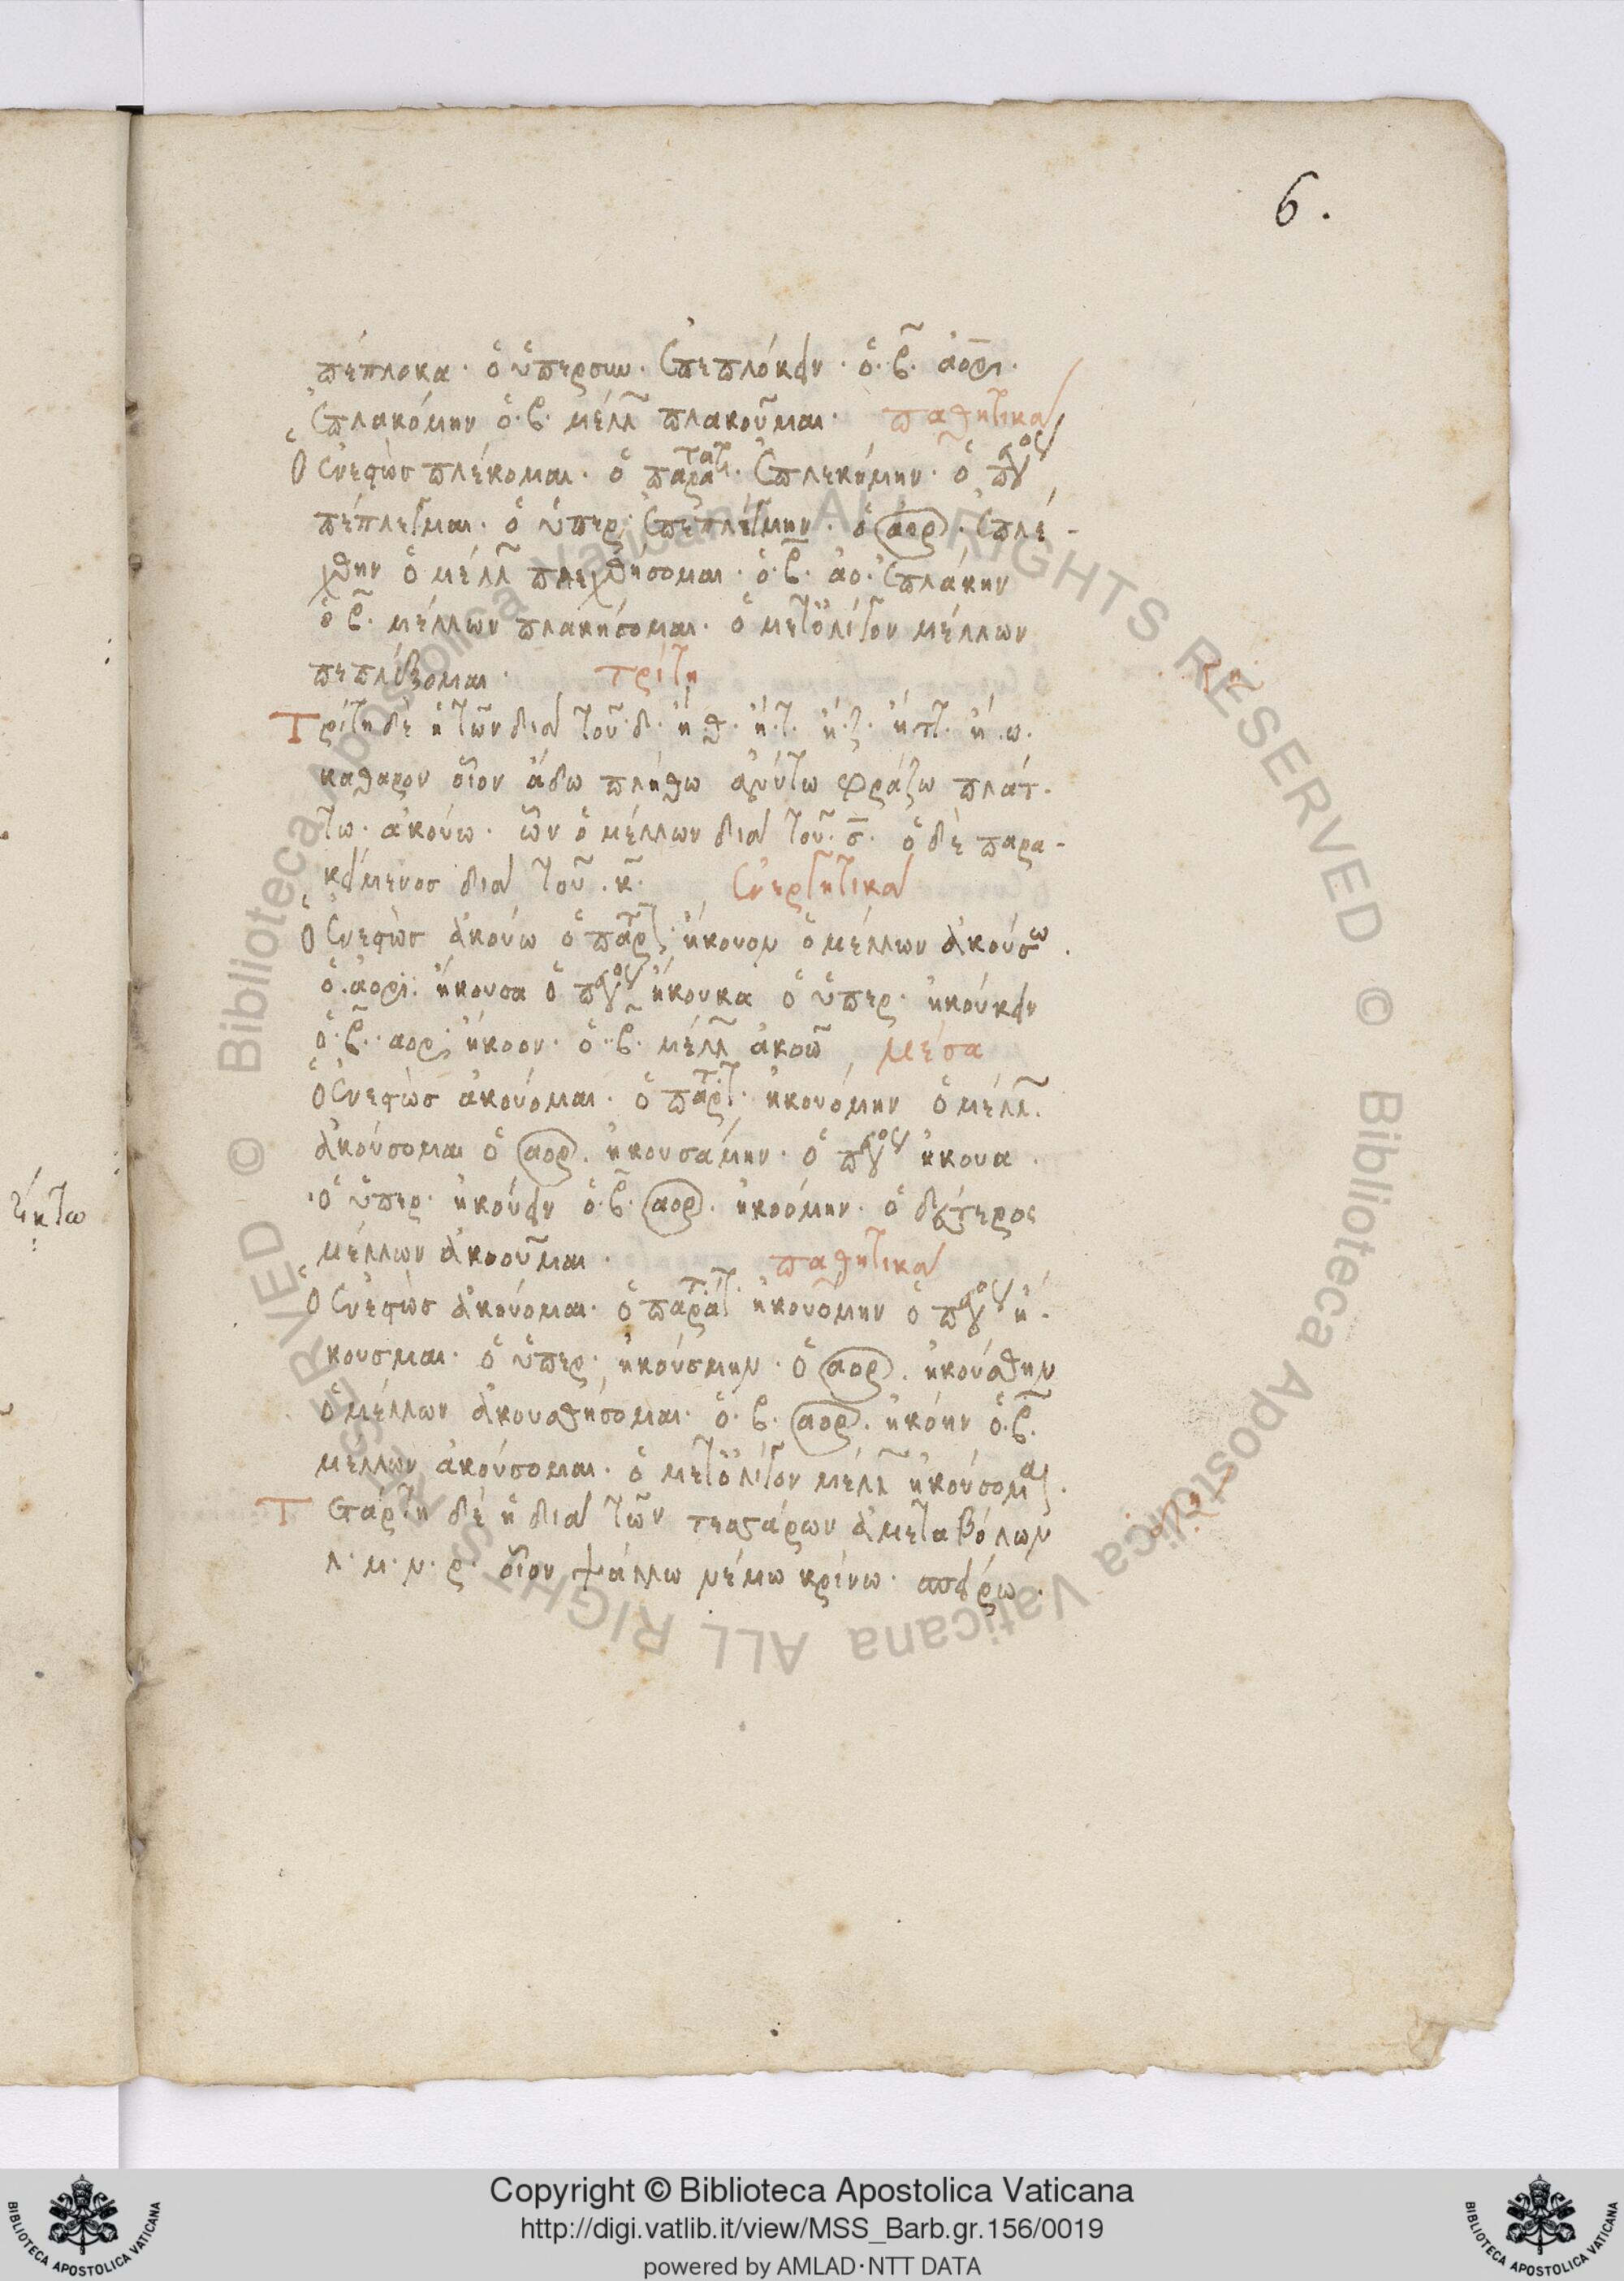 6.
πέπλοκα· ὁ ὑπερσυν· ἐπεπλόκειν· ὁ· β̃· ἀορι·
ἐπλακόμην ὁ· β· μέλλ πλακοῦμαι· παθητικὰ
Ὁ ἐνεστὼσ πλέκομαι· ὁ παρατατ· ἐπλεκόμην· ὁ
πέπλεγμαι· ὁ ὑπερ· ἐπεπλέγμην· ὁ ἀορ· ἐπλέ-
χθην ὁ μέλλ πλεχθήσομαι· ὁ· β̃· ἀο· ἐπλάκην
ὁ β̃· μέλλων πλακήσομαι· ὁ μετολίγον μέλλων
πεπλέξομαι· τρίτη
γη
Τρίτη δὲ ἡ τῶν διὰ τοῦ· δ· ἢ θ· ἢ· τ· ἢ· ζ· ἢ πτ· ἢ· ω·
καθαρον οἷον ἄδω πλήθω ἀνύτω φράζω πλάτ-
τω· ἀκούω· ὧν ὁ μέλλων διὰ τοῦ· σ̄· ὁ δὲ παρα-
κείμενοσ διὰ τοῦ· κ̃· ἐνεργητικὰ
Ὁ ἐνεστὼσ ἀκούω ὁ παρατ· ἤκουον ὁ μέλλων ἀκούσω·
ὁ· ἀορι· ἤκουσα ὁ ἤκουκα ὁ ὑπερ· ἠκούκειν
ὁ· β̃· αορ· ἤκοον· ὁ· β̃· μέλλ ἀκοῶ, μέσα
Ὁ ἐνεστὼσ ἀκούομαι· ὁ παρατ· ἠκουόμην ὁ μέλλ·
ἀκούσομαι ὁ αορ· ἠκουσάμην· ὁ ἤκουα·
ὁ ὑπερ· ἠκούειν ὁ· β̃· αορ· ἠκοόμην· ὁ δεύτερος
μέλλων ἀκοοῦμαι· παθητικὰ
Ὁ ἐνεστὼσ ἀκούομαι· ὁ παρατατ· ἠκουόμην ὁ ἤ-
κουσμαι· ὁ ὑπερ· ἠκούσμην· ὁ αορ· ἠκούσθην
ὁ μέλλων ἀκουσθήσομαι· ὁ· β· αορ· ἠκόην ὁ· β̃·
μέλλων ἀκούσομαι· ὁ μετολίγον μέλλ ἠκούσομαι·
Τετάρτη δὲ ἡ διὰ τῶν τεσσάρων ἀμεταβόλων
λ· μ· ν· ρ· οἷον ψάλλω νέμω κρίνω· σπείρω·
Copyright © Biblioteca Apostolica Vaticana
http://digi.vatlib.it/view/MSS_Barb.gr.156/0019
powered by AMLAD·NTT DATA